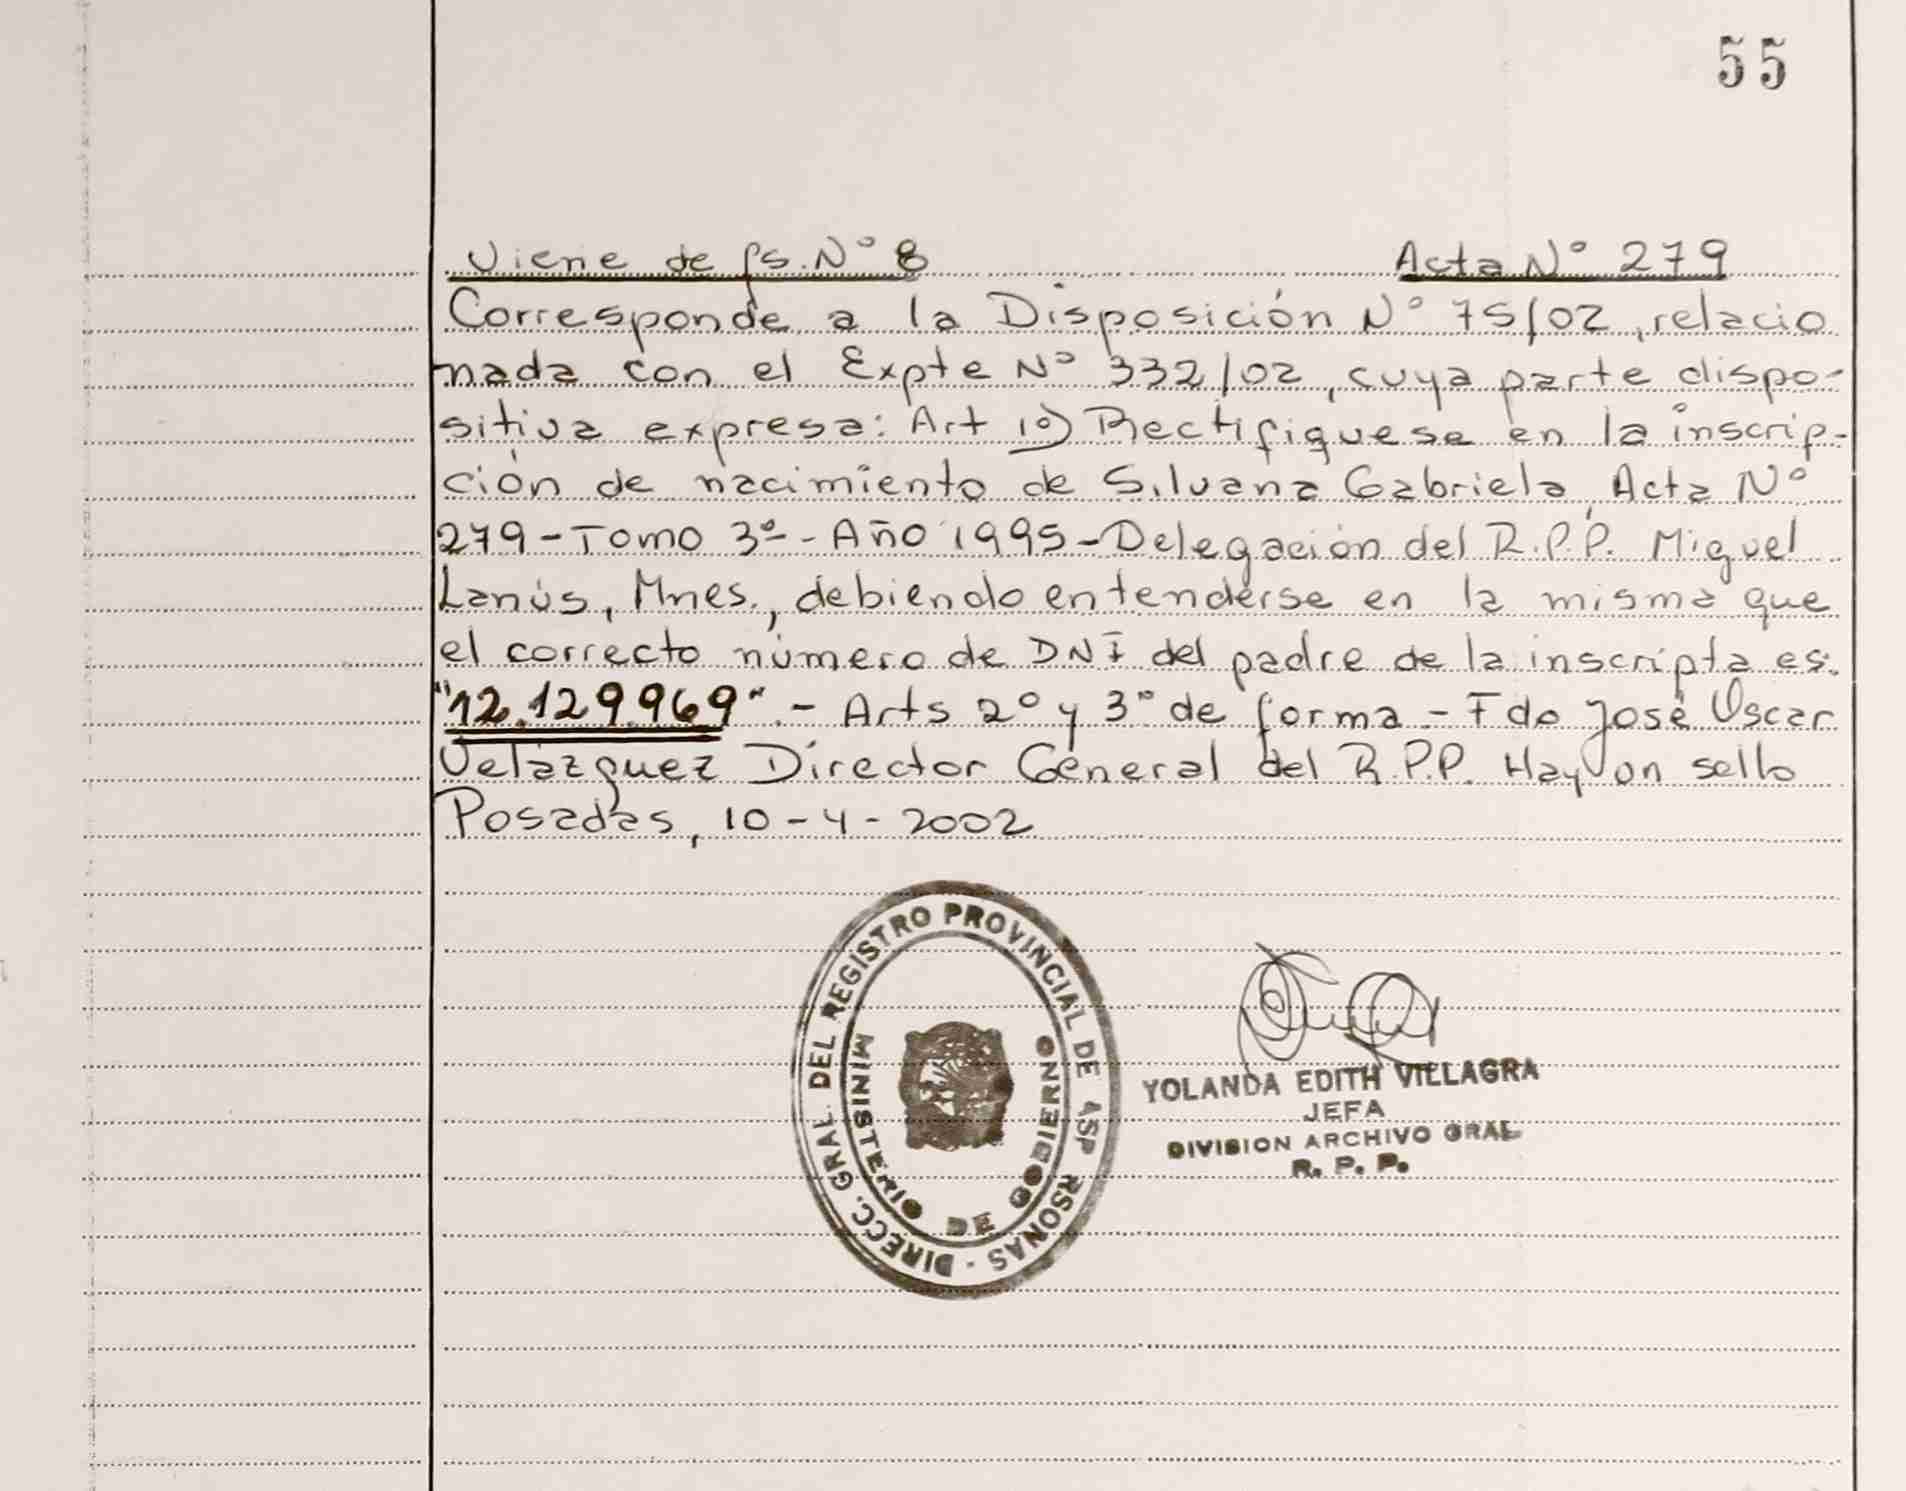 55
Viene de fs. N° 8 Acta N° 279
Corresponde a la Disposición N° 75/02, relacio
nada con el Expte N° 332/02, cuya parte dispo-
sitiva expresa: Art 1º) Rectifiquese en la inscrip-
ción de nacimiento de Silvana Gabriela, Acta N°
279 - Tomo 3º - Año 1995 - Delegación del R.P.P. Miguel
Lanús, Mnes., debiendo entenderse en la misma que
el correcto número de DNI del padre de la inscripta es:
"12.129.969". - Arts 2° y 3° de forma - Fdo José Oscar
Velázquez Director General del R.P.P. Hay un sello
Posadas, 10-4-2002
DIRECC. GRAL. DEL REGISTRO PROVINCIAL DE RSONAS -
MINISTERIO DE GOBIERNO
YOLANDA EDITH VILLAGRA
JEFA
DIVISION ARCHIVO GRAL
R. P. P.